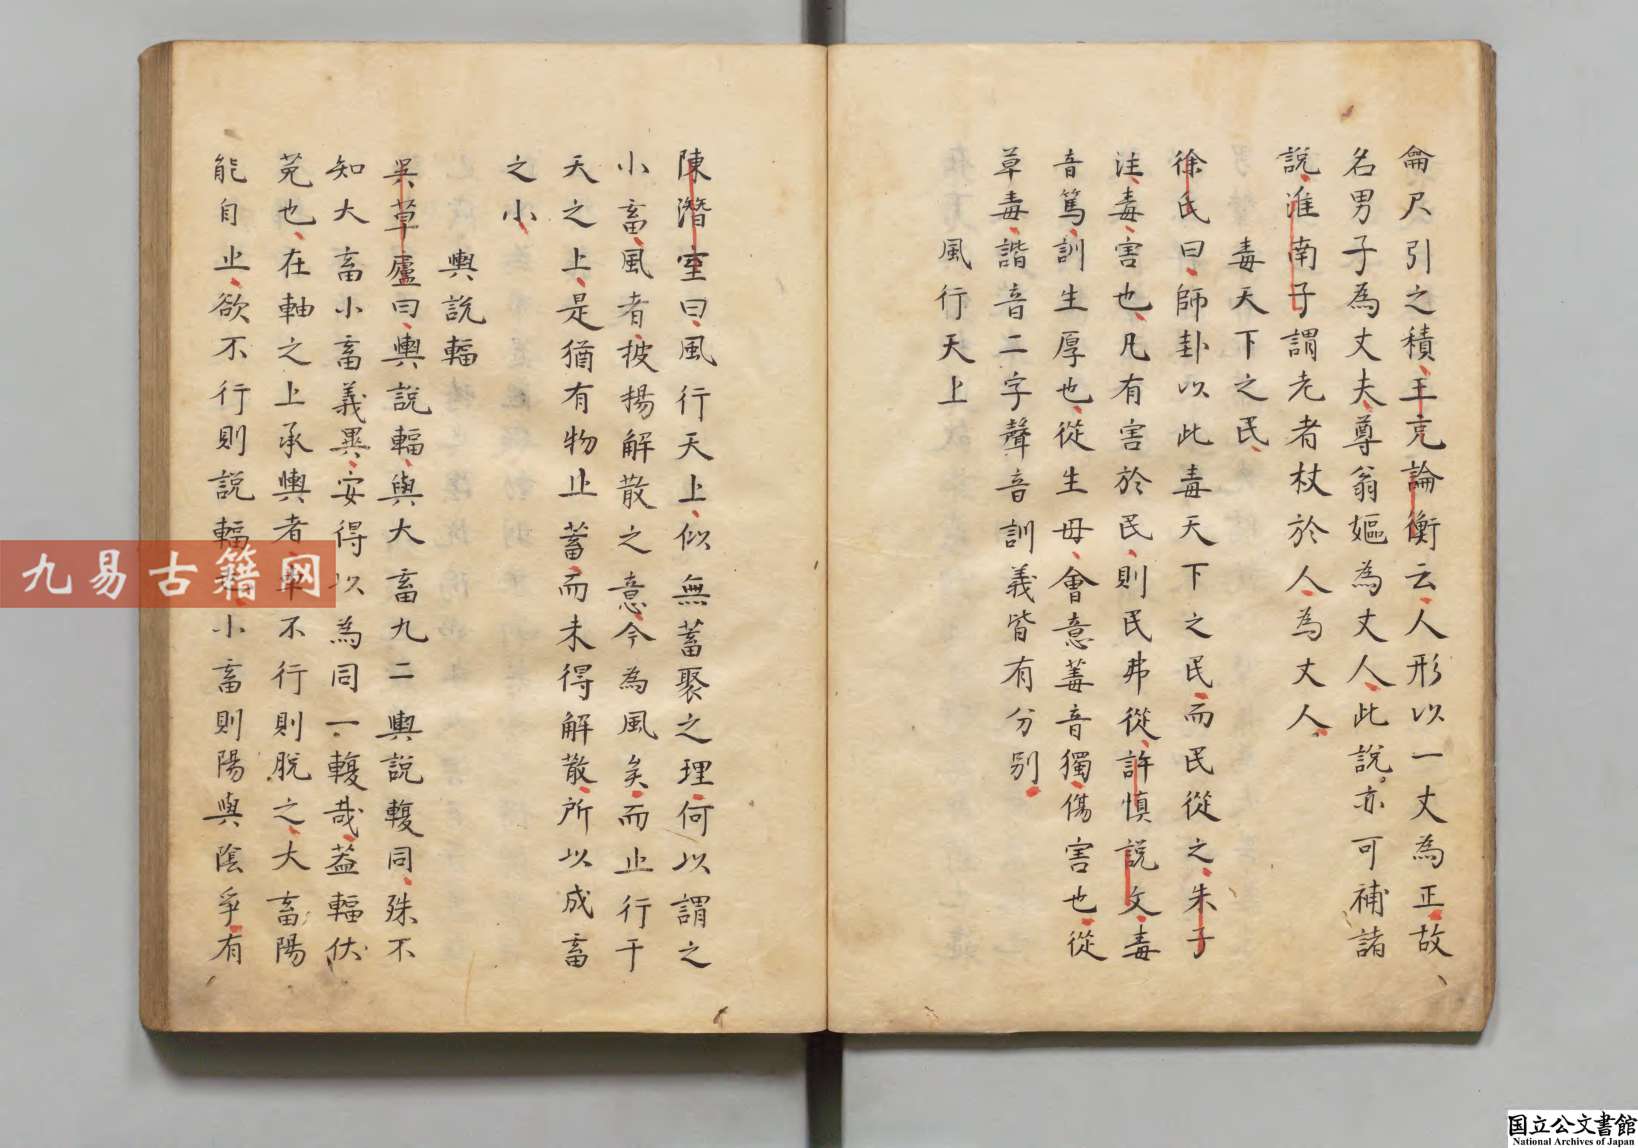 龠尺引之積王充論衡云人形以一丈為正故
名男子為丈夫尊翁嫗為丈人此說亦可補諸
說淮南子謂老者杖於人為丈人
毒天下之民
徐氏曰師卦以此毒天下之民而民從之朱子
注毒害也凡有害於民則民弗從許慎說文毒
音篤訓生厚也從生毋會意葢音獨傷害也從
草毒諧音二字聲音訓義皆有分別
風行天上
陳潛室曰風行天上似無蓄聚之理何以謂之
小畜風者披揚解散之意今為風矣而止行于
天之上是猶有物止蓄而未得解散所以成畜
之小
輿說輻
吳草廬曰輿說輻與大畜九二輿說輹同殊不
知大畜小畜義異安得以為同一輹哉蓋輻伏
菟也在軸之上承輿者車不行則脫之大畜陽
能自止欲不行則說輻小畜則陽與陰爭有
九易古籍网
国立公文書館
National Archives of Japan